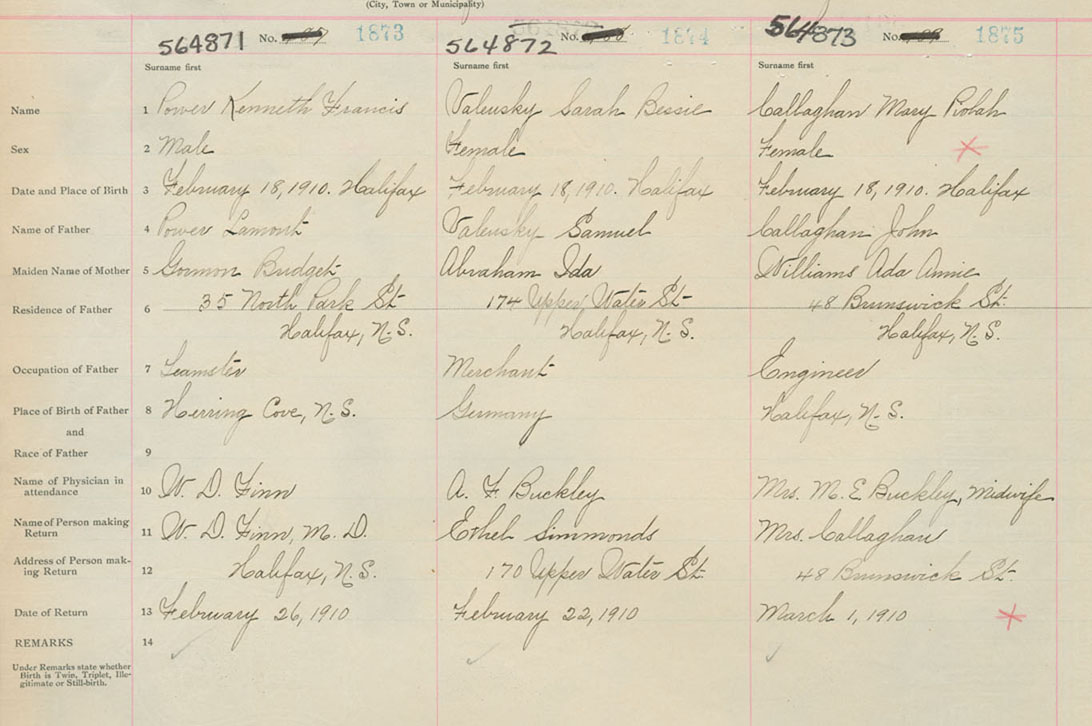 (City, Town or Municipality)
564871 No. 1873 564872 No. 1874 564873 No. 1875
Surname first Surname first Surname first
Name 1 Power Kenneth Francis Valensky Sarah Bessie Callaghan Mary
Sex 2 Male Female Female
Date and Place of Birth 3 February 18, 1910. Halifax February 18, 1910. Halifax February 18, 1910. Halifax
Name of Father 4 Power Lamont Valensky Samuel Callaghan John
Maiden Name of Mother 5 Gormon Bridget Abraham Ida Williams Ada Annie
Residence of Father 6 35 North Park St 174 Upper Water St 48 Brunswick St.
Halifax, N.S. Halifax, N.S. Halifax, N.S.
Occupation of Father 7 Teamster Merchant Engineer
Place of Birth of Father 8 Herring Cove, N.S. Germany Halifax, N.S.
and
Race of Father 9
Name of Physician in attendance 10 W. D. Finn A. F Buckley Mrs. M. E Buckley, Midwife
Name of Person making Return 11 W. D. Finn, M. D. Ethel Simmonds Mrs. Callaghan
Address of Person mak-ing Return 12 Halifax, N.S. 170 Upper Water St. 48 Brunswick St.
Date of Return 13 February 26, 1910 February 22, 1910 March 1, 1910
REMARKS 14
Under Remarks state whether
Birth is Twin, Triplet, Ille-
gitimate or Still-birth.